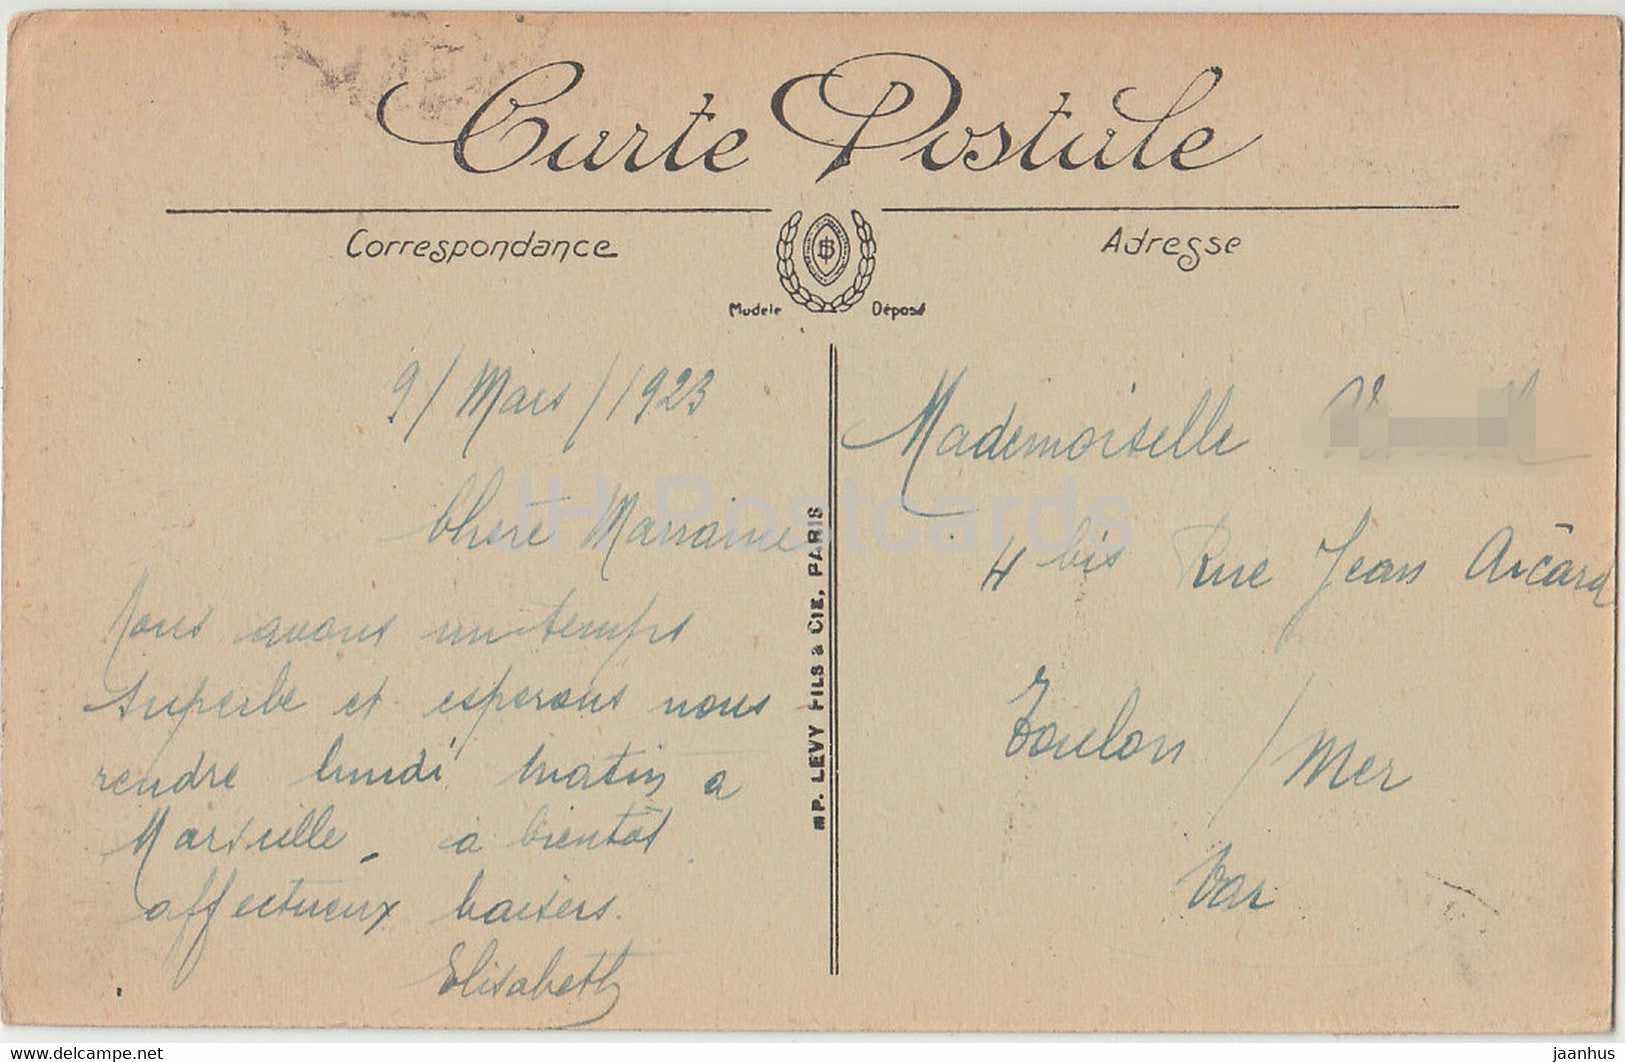 Carte Postale
Correspondance
Adresse
Modèle Déposé
9/Mars/1923
Chère Marraine
Nous avons un temps
superbe et esperons nous
rendre lundi matin a
Marseille - à bientôt
affectueux baisers.
Elisabeth
IMP. LEVY FILS & CIE, PARIS
Mademoiselle
4 bis Rue Jean Aicard
Toulon / Mer
Var
JH Postcards
www.delcampe.net
jaanhus